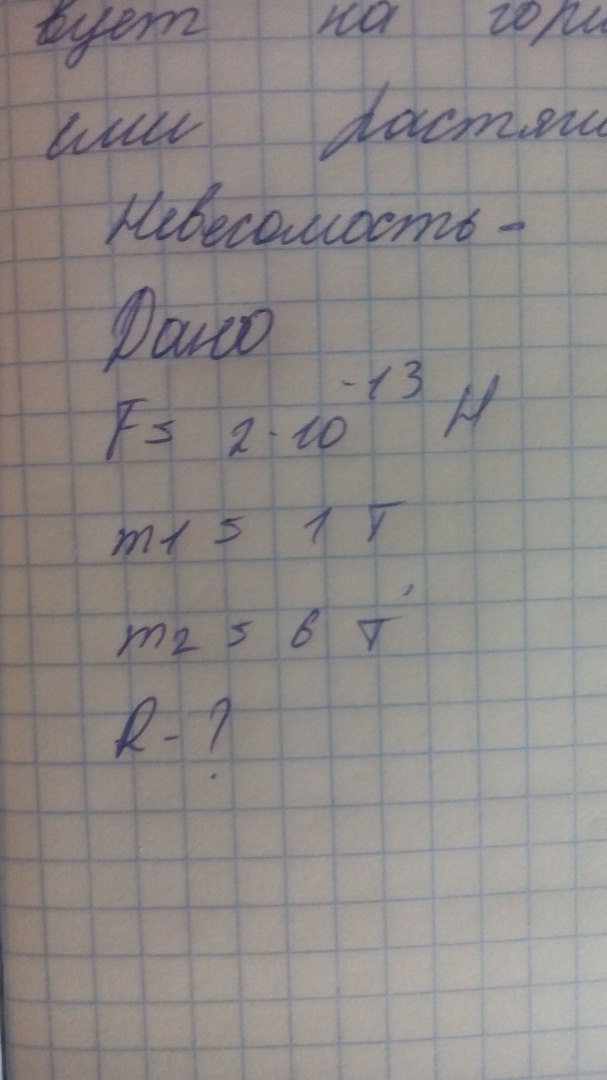 вует на гори
ими растяги
Невесомость -
Дано
F = 2 · 10⁻¹³ Н
m1 = 1 т
m2 = 6 т
R - ?